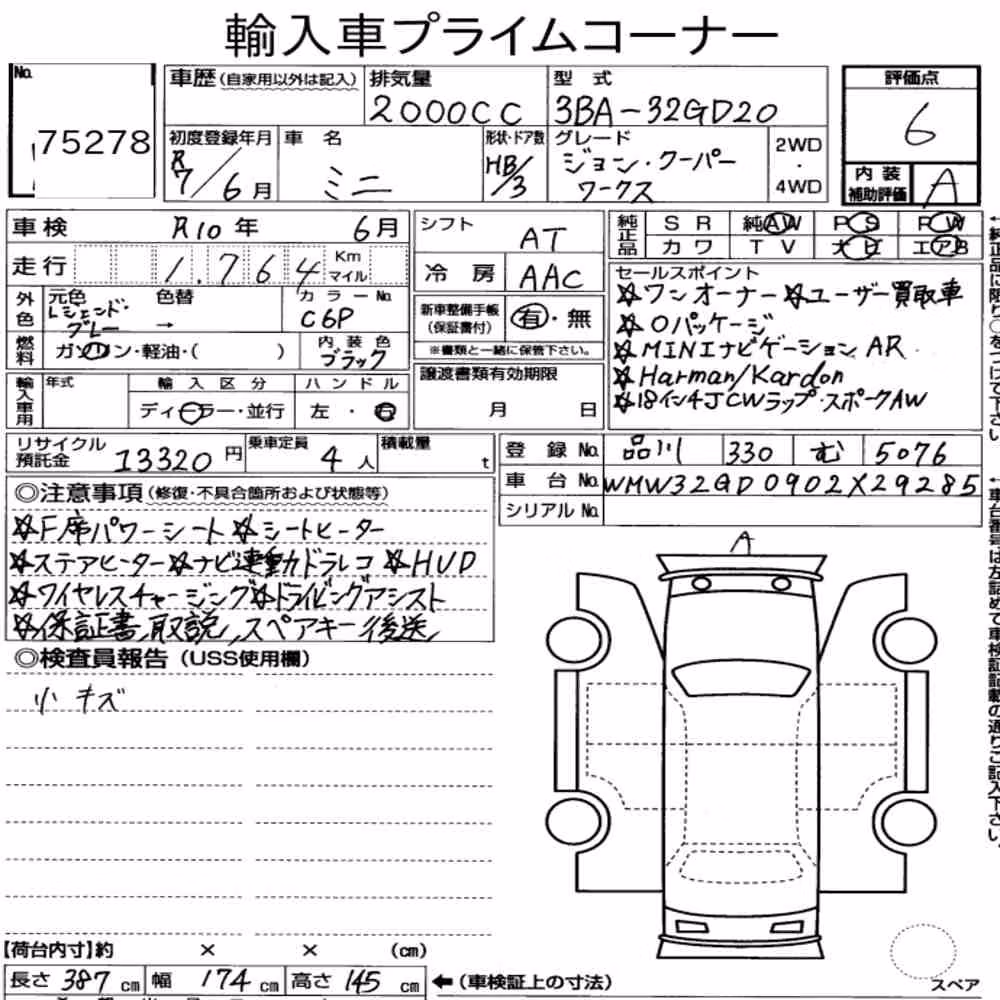 輸入車プライムコーナー
No. 75278
車歴(自家用以外は記入)
排気量 2000CC
型式 3BA-32GD20
評価点 6
初度登録年月 R7/6月
車名 ミニ
形状・ドア数 HB/3
グレード ジョン・クーパーワークス
2WD・4WD
内装補助評価 A
車検 R10年 6月
シフト AT
純正品 SR 純AW PS PW
カワ TV 大ビ エアB
走行 1.764 Km マイル
冷房 AAC
セールスポイント
☆ワンオーナー☆ユーザー買取車
☆Oパッケージ
☆MINIナビゲーションAR
☆Harman/Kardon
☆18インチJCWラップ・スポークAW
外色 元色 Lジェンド・グレー → 色替
カラーNo. C6P
新車整備手帳(保証書付) 有・無
※書類と一緒に保管下さい。
燃料 ガソリン・軽油・( )
内装色 ブラック
譲渡書類有効期限 月 日
輸入車用 年式
輸入区分 ディーラー・並行
ハンドル 左・右
リサイクル預託金 13320円
乗車定員 4人
積載量 t
登録No. 品川 330 む 5076
車台No. WMW32GD0902X29285
シリアルNo.
◎注意事項(修復・不具合箇所および状態等)
☆F席パワーシート☆シートヒーター
☆ステアヒーター☆ナビ連動ドラレコ☆HUD
☆ワイヤレスチャージング☆ドライビングアシスト
☆保証書、取説、スペアキー後送
◎検査員報告(USS使用欄)
小キズ
A
【荷台内寸】約 × × (cm)
長さ 387cm 幅 174cm 高さ 145cm ←(車検証上の寸法)
スペア
←純正品に限り○をつけて下さい
←車台番号は左詰めで車検証記載の通りご記入下さい。